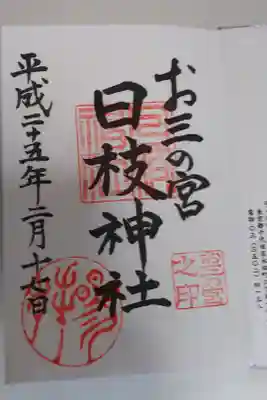 お三の宮
日枝神社
平成二十五年二月十七日
之印